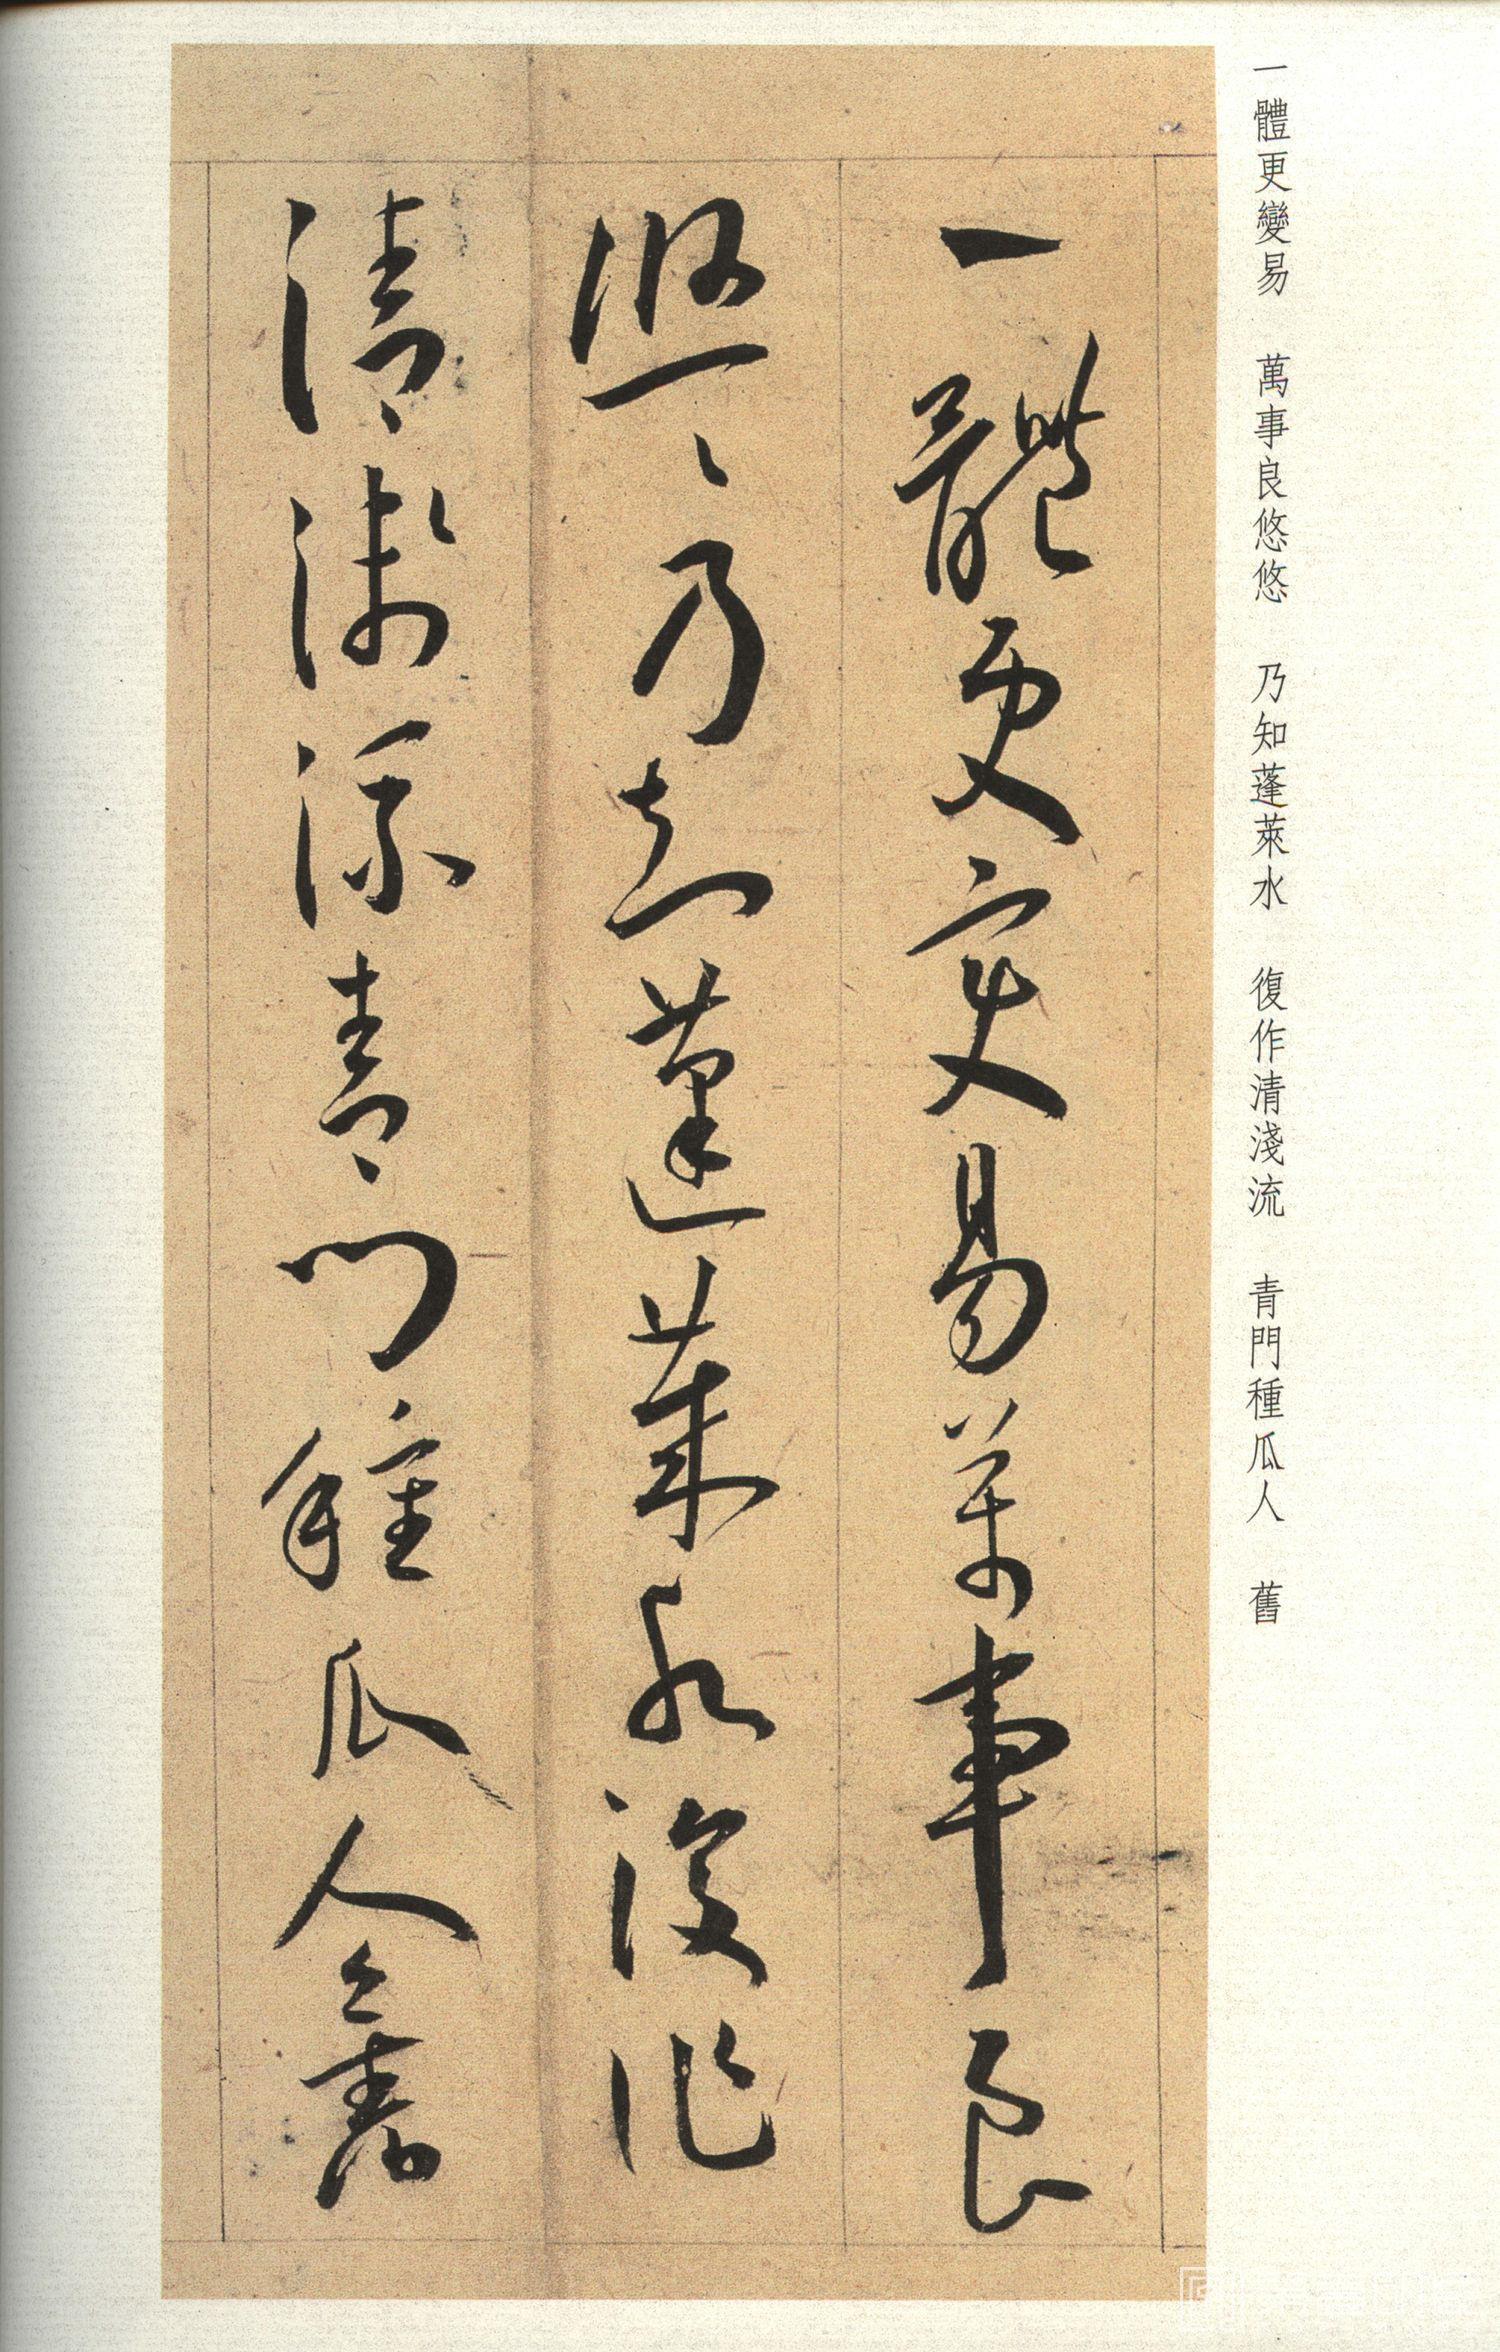 一體更變易　萬事良悠悠　乃知蓬萊水　復作清淺流　青門種瓜人　舊
一體更變易萬事良
悠〻乃知蓬萊水復作
清淺流青門種瓜人舊